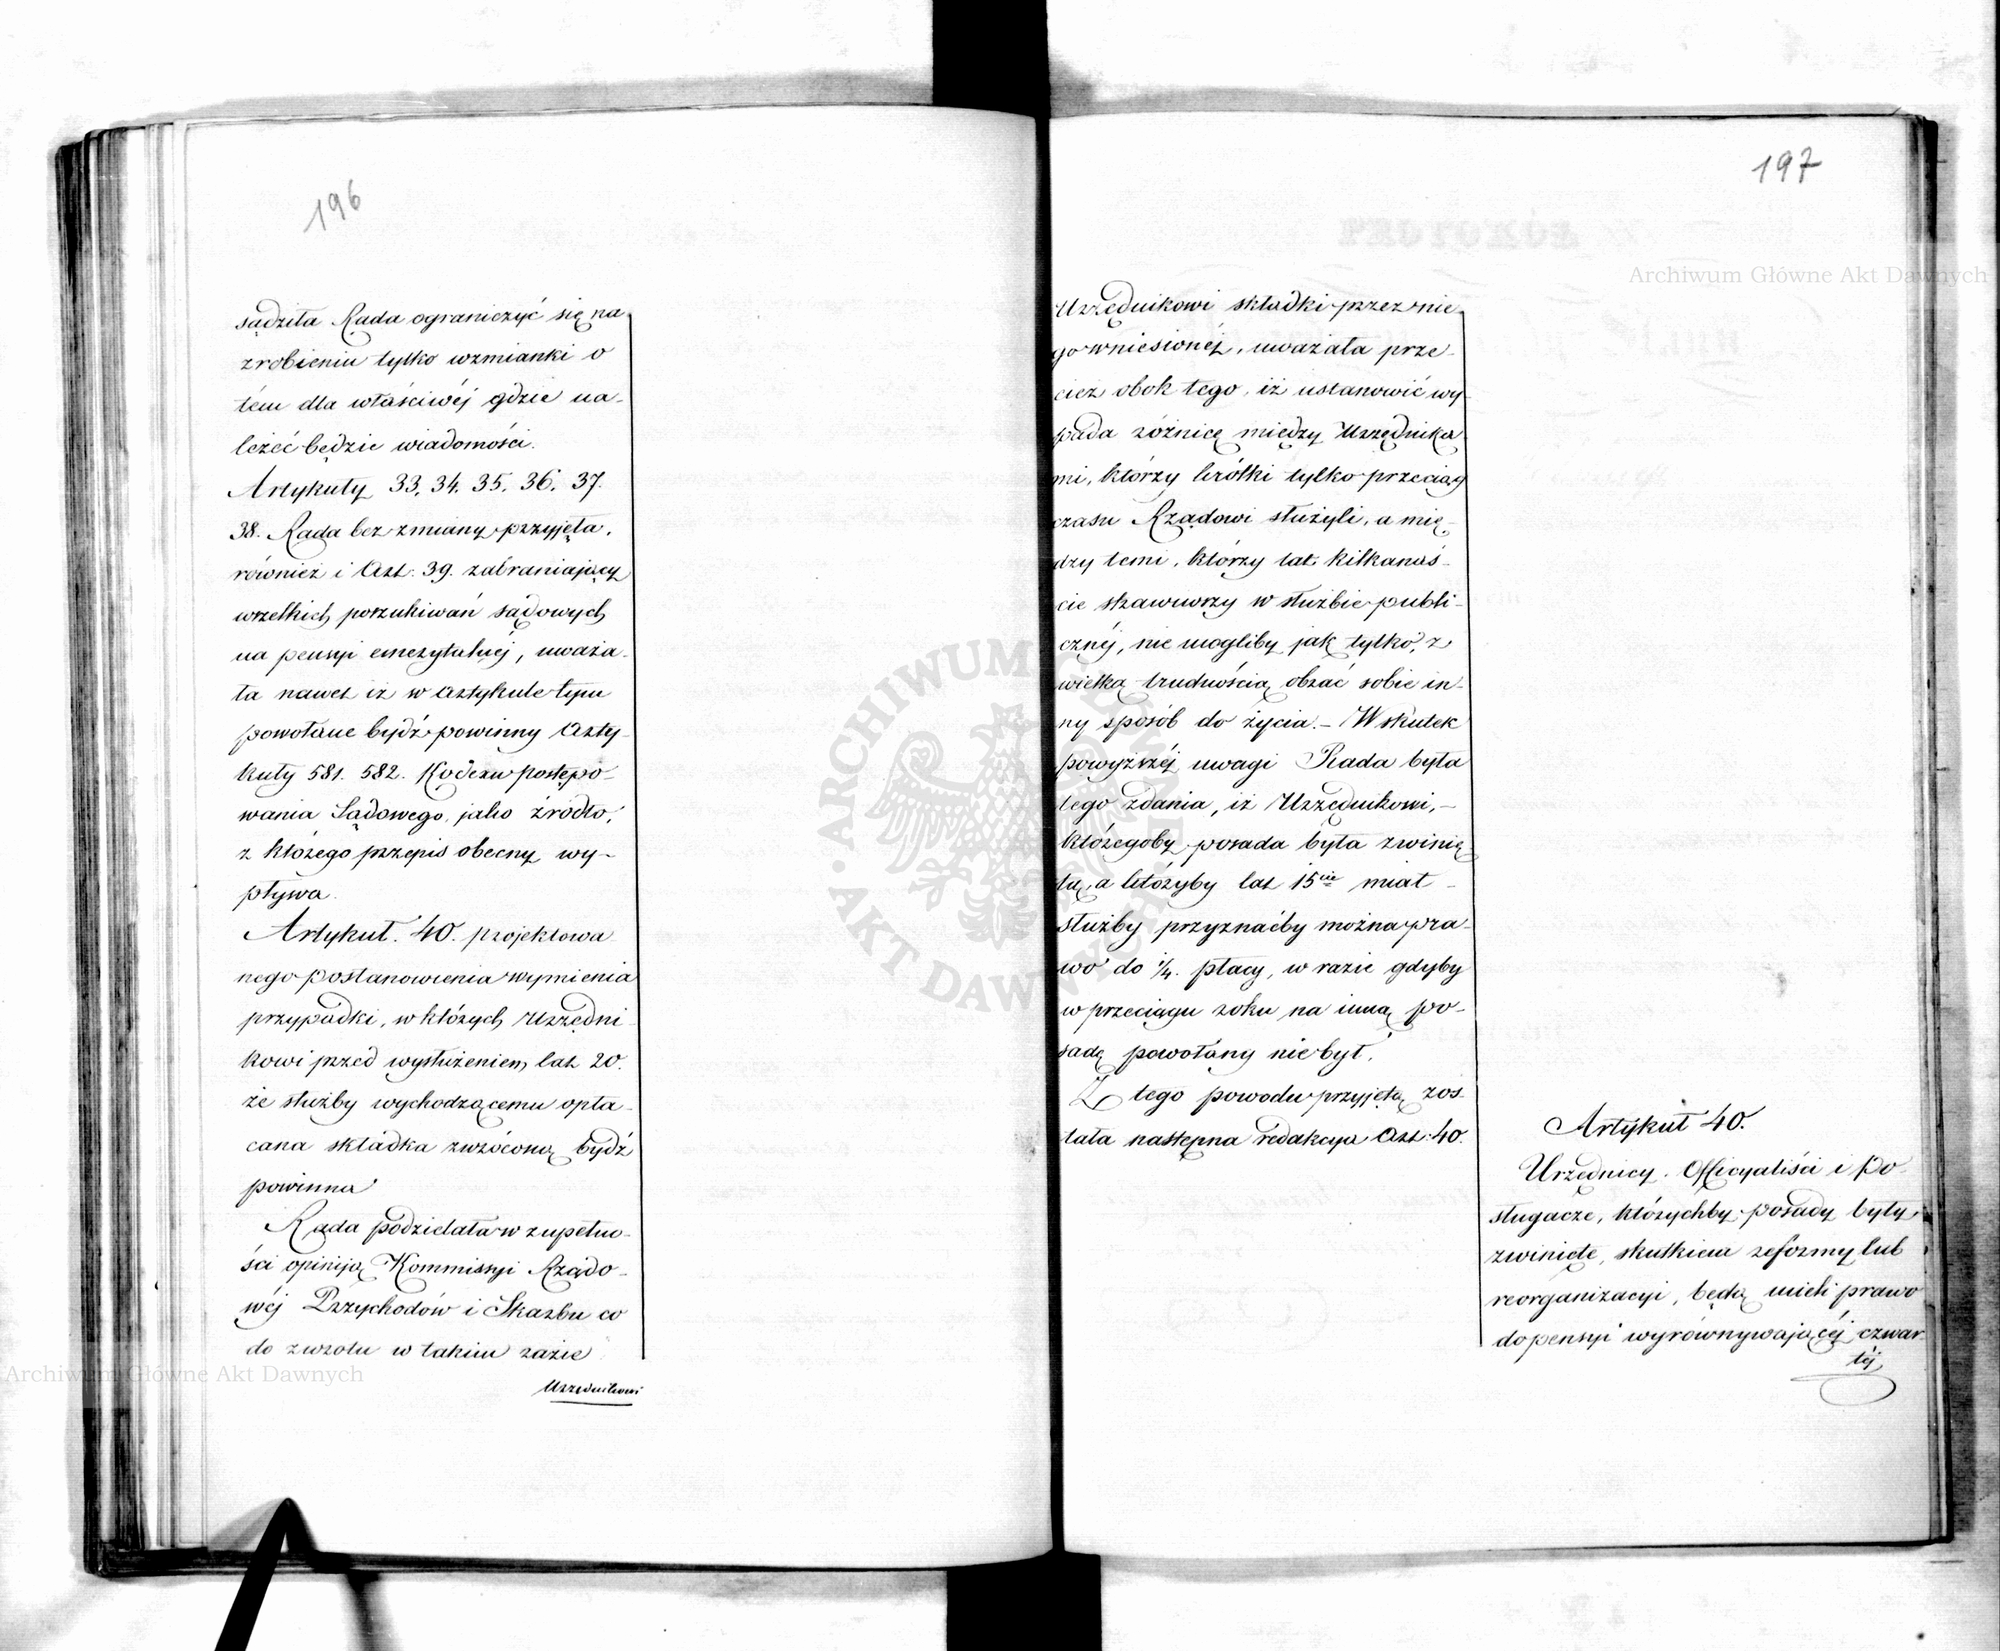 196
sądziła Rada ograniczyć się na
zrobieniu tylko wzmianki o
tém dla właściwéj gdzie na-
leżéć będzie wiadomości.
Artykuły 33, 34. 35. 36. 37.
38. Rada bez zmiany przyjęła,
również i Art: 39. zabraniający
wszelkich poszukiwań sądowych
na pensyi emerytalnéj, uważa-
ła nawet iż w artykule tym
powołane bydź powinny Arty-
kuły 581. 582. Kodexu postępo-
wania Sądowego, jako źródło,
z którego przepis obecny wy-
pływa.
Artykuł. 40. projektowa
nego postanowienia wymienia
przypadki, w których Urzędni-
kowi przed wysłużeniem lat 20.
ze służby wychodzącemu opła-
cana składka zwróconą bydź
powinna
Rada podzielała w zupełno-
ści opiniją Kommissyi Rządo-
wéj Przychodów i Skarbu co
do zwrotu w takim razie
Urzędnikowi
197
Urzędnikowi składki przez nie-
go wniesionéj, uważała prze-
cież obok tego, iż ustanowić wy-
pada różnicę między Urzędnika
mi, którzy krótki tylko przeciąg
czasu Rządowi służyli, a mię-
dzy temi, którzy lat kilkanaś-
cie strawiwszy w służbie publi-
cznéj, nie mogliby jak tylko, z
wielką trudnością obrać sobie in-
ny sposób do życia. - W skutek
powyższéj uwagi Rada była
tego zdania, iż Urzędnikowi, -
któregoby posada była zwinię-
tą, a któryby lat 15cie miał -
służby przyznaćby można pra-
wo do 1/4. płacy, w razie gdyby
w przeciągu roku na inną po-
sadę powołany nie był.
Z tego powodu przyjętą zos-
tała następna redakcya Art: 40.
Artykuł 40.
Urzędnicy, Officyaliści i Po-
sługacze, którychby posady były
zwinięte, skutkiem reformy lub
reorganizacyi, będą mieli prawo
do pensyi wyrównywającéj czwar
téj
Archiwum Główne Akt Dawnych
Archiwum Główne Akt Dawnych